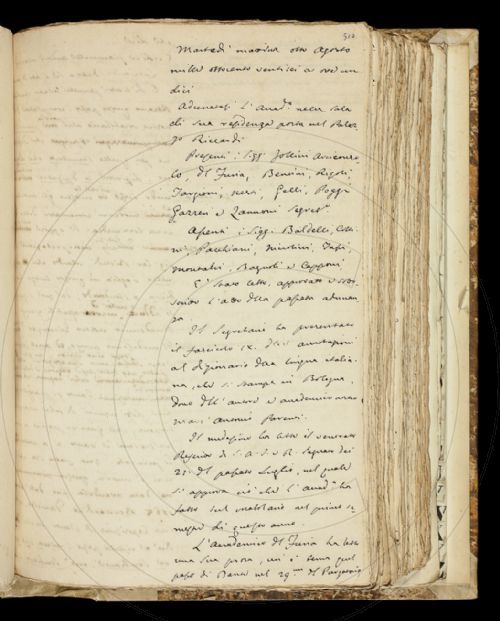 512
Martedì mattina otto Agosto
mille ottocento ventisei a ore un
dici
Adunatasi l'Accad.ª nella sala
di sua residenza posta nel Palaz
zo Riccardi
Presenti i Sigg.
lo, Del Furia, Bencini, Rigoli
Targioni, Nesti, Gelli, Poggi
e Zannoni Segret.º
Assenti i Sigg. Baldelli, Colli
ni, Pacchiani, Niccolini,
Montalvi, Bagnoli e Capponi
È stato letto, approvato e sot
scritto l'atto della passata adunan
za.
Il Segretario ha presentato
il fascicolo IX. delle annotazioni
al dizionario della lingua italia
na, che si stampa in Bologna,
dono dell'autore e accademico
Antonio Parenti.
Il medesimo ha letto il venerato
Rescritto di S. A. I. e R. segnato dei
21. del passato Luglio, nel quale
si approva ciò che l'Accad.ª ha
fatto sul vocabolario nel primo se
mestre di quest'anno.
L'Accademico Del Furia ha letto
una sua prosa, in cui
passo di Dante nel 29.mo del Purgatorio